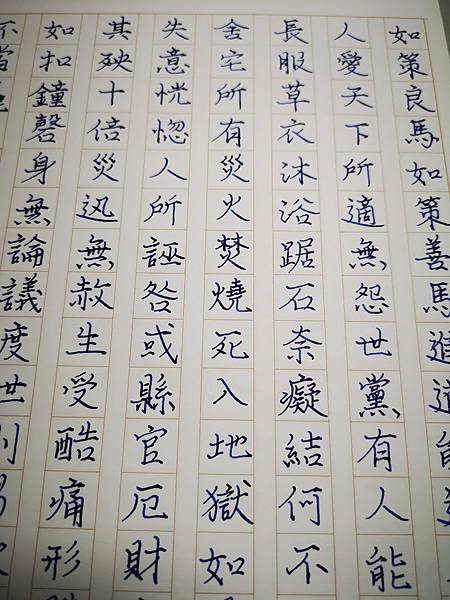 如策良馬如策善馬進道能
人愛天下所適無怨世黨有人能
長服草衣沐浴踞石奈癡結何不
舍宅所有災火焚燒死入地獄如
失意恍惚人所誣咎或縣官厄財
其殃十倍災迅無赦生受酷痛形
如扣鐘磬身無論議度世則易
不當